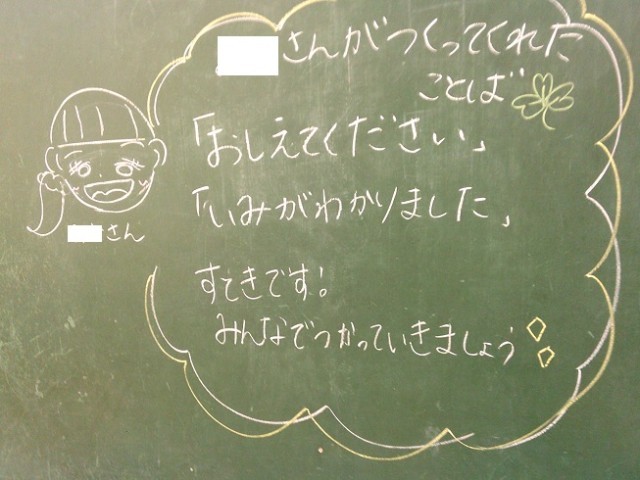 さんがつくってくれた
ことば
「おしえてください」
「いみがわかりました」
すてきです!
みんなでつかっていきましょう
さん